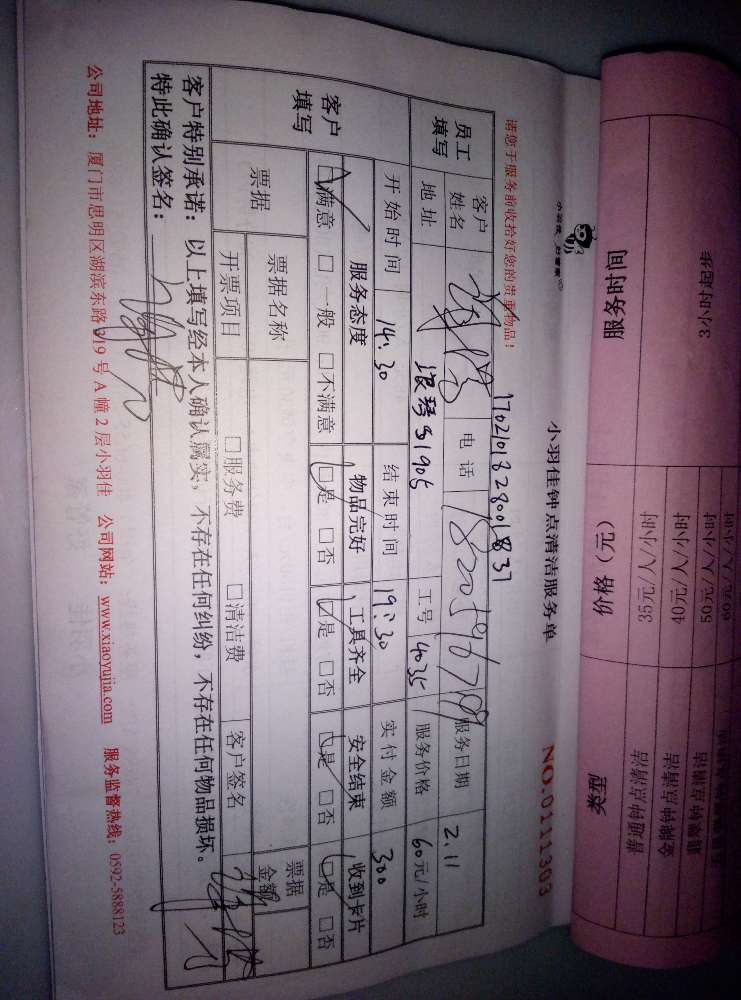 服务时间
价格（元）
类型
3小时起步
35元/人/小时
普通钟点清洁
40元/人/小时
50元/人/小时
60元/人/小时
小羽佳钟点清洁服务单
NO.0111303
1702101828001837
请您于服务前收拾好您的贵重物品！
员工填写
客户姓名
电话
服务日期
2.11
地址
S1905
工号
4035
服务价格
60元/小时
客户填写
开始时间
14:30
结束时间
19:30
实付金额
300
服务态度
物品完好
工具齐全
安全结束
收到卡片
□满意 □一般 □不满意
□是 □否
□是 □否
□是 □否
□是 □否
票据
票据名称
票据金额
开票项目
□服务费 □清洁费
客户签名
客户特别承诺：以上填写经本人确认属实，不存在任何纠纷，不存在任何物品损坏。
特此确认签名：
公司地址：厦门市思明区湖滨东路319号A幢2层小羽佳 公司网站：www.xiaoyujia.com 服务监督热线：0592-5888123